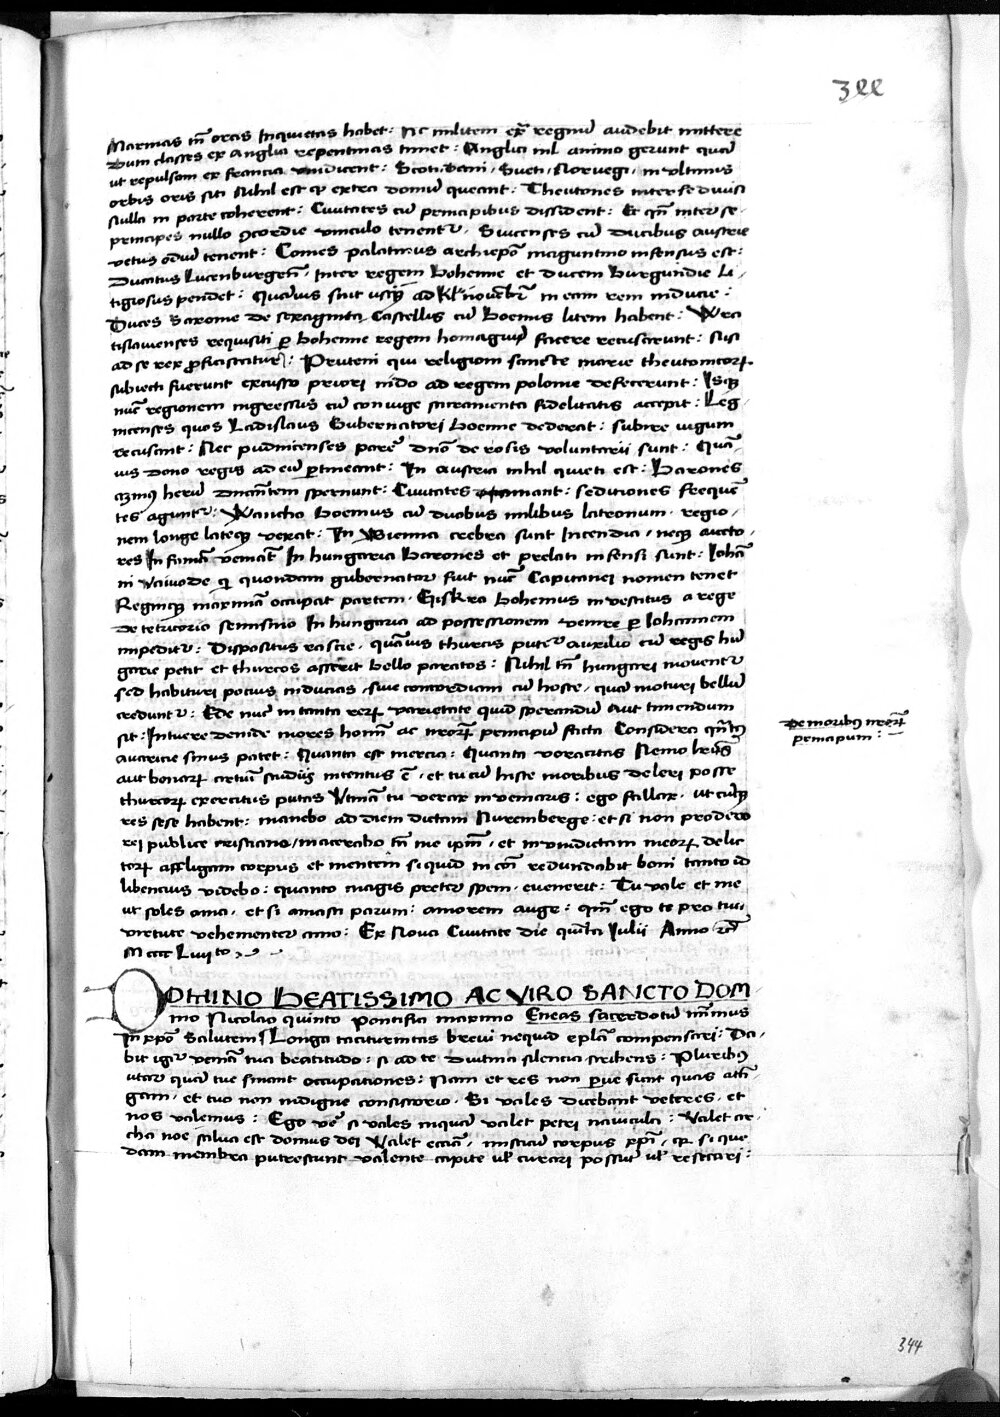 3ll
Marinas tn̄ oras inquietas habet : Nc militem ex̄ regnū audebit mittere
Dum classes ex Anglia repentinas timet : Anglici nil animo gerunt quā
ut repulsam ex francia vindicent : Scoti . Dani . Sueti . Noruegi . in ultimis
orbis oris siti Nihil est qͥ extra domū queant : Theutones inter se diuisi
nulla in parte coherent : Ciuitates cū principibus dissident : Et qn̄ inter se .
principes nullo ꝯcordie vinculo tenentr̄ . Suicenses cū Ducibus austrie
vetus odiū tenent : Comes palatinus archiepo͞ maguntino infensus est :
Ducatus Lucenburgen͞ . Inter regem bohemie et ducem burgundie li /
tigiosus pendet : Quāuis sint usqꝫ ad kl͞ nouēbr͞ in eam rem inducie :
Duces Saxonie de sexaginta Castellis cū boemis litem habent : Wra
tislauienses requisiti ꝑ bohemie regem homagiū facere recusarunt : nisi
ad se rex ꝓficiscatur : Pruteni qui religioni sancte marie theutonicoꝝ
subiecti fuerunt excusso priori nido ad regem polonie defecerunt : Isqꝫ
nūc regionem ingressus cū coniuge sacramenta fidelitatis accepit : Leg
nicenses quos Ladislaus Gubernatori boemie dederat : subire iugum
recusant : Nec pudnicenses parē dnō de rosis voluntarii sunt : Quā
uis dono regis ad eū ꝑtineant : In austria nihil quieti est : barones
herū dnāntem spernunt : Ciuitates seditiones frequē
tes aguntr̄ : Wancho boemus cū duobus milibus latronum . regio /
nem longe lateqꝫ vexat : In Wienna crebra sunt Incendia . neqꝫ aucto /
res In famā veniāt In hungaria barones et prelati infensi sunt : Johā
ni waiuode qͥ quondam gubernator fuit nūc Capitanei nomen tenet
Regniqꝫ maximā occupat partem . Giskra bohemus inuestitus a rege
de territorio semisnio In hungaria ad possessionem venire ꝑ Johannem
impeditr̄ : Dispositus rascie . quāuis thurcis putetr̄ auxilio cū regis hū
garie petit et thurcos asserit bello paratos : Nihil tn̄ hungari mouentr̄
sed habituri potius inducias . siue concordiam cū hoste . quā moturi bellū
creduntr̄ : Ede nūc in tanta rerꝝ varietate quid sperandū aut timendum
sit : Intuere deinde mores homī͞ ac nr̄oꝝ principū facta Considera qn̄tꝰ
auaricie sinus patet : Quanta est inercia : Quanta voracitas Nemo lris͞
aut bonarꝝ artiū studiis intentus ē . et tu cū hiisce moribus deleri posse
thurcoꝝ exercitus putas Vtinā tu verax inueniaris : ego fallax . ut cūqꝫ
res sese habent : manebo ad diem dictam Nuremberge : et si non prodero
rei publice cristiane / macerabo tn̄ me ipm͞ . et in vindictam meoꝝ delic
torꝝ affligam corpus et mentem si quid in cōi redundabit boni tanto id
libencius videbo : quanto magis preter spem . euenerit : Tu vale et me
ut soles ama . et si amasti parum : amorem auge : qm͞ ego te pro tua
virtute vehementer amo : Ex Noua Ciuitate die quīta Julii Anno rc̄
M cccc Luiito
De moribꝰ nr̄oꝝ
principum :
DOMINO BEATISSIMO AC VIRO SANCTO DOM /
ino Nicolao quinto pontifici maximo Eneas sacerdotū mīmus
In xp̄o Salutem Longa taciturnitas breui nequid epl̄a compensari : Da /
bit igr̄ veniā tua beatitudo : si ad te diutina silencia scribens : Pluribꝰ
utar quā tue sinant occupationes : Nam et res non ꝑue sunt quas attī
gam . et tuo non indigne consistorio . Si vales dicebant veteres . et
nos valemus : Ego vē si vales inquā valet petri nauicula : Valet ar .
cha noe salua est domus dei Walet eccīa . misticū corpus xp̄i . qͥ si que
dam membra putrescunt valente capite ul̄ curari possūt ul̄ resecari :
344